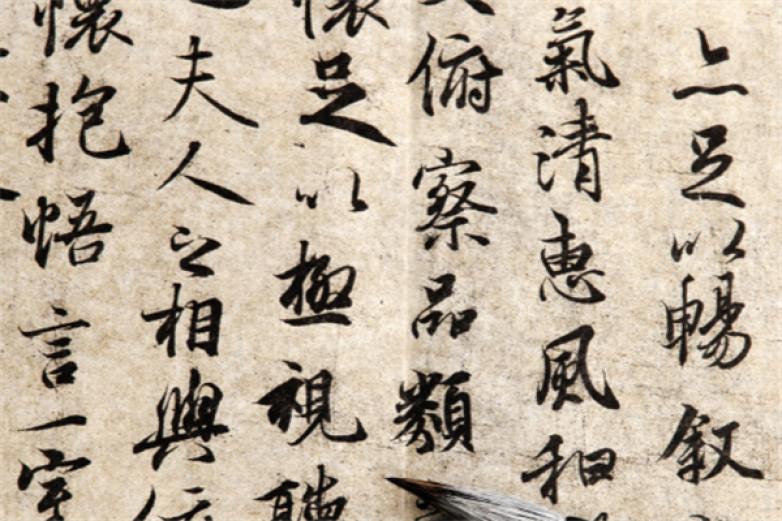 亦足以暢叙
氣清惠風和
俯察品類
懷足以極視聽
夫人之相與
懷抱悟言一室